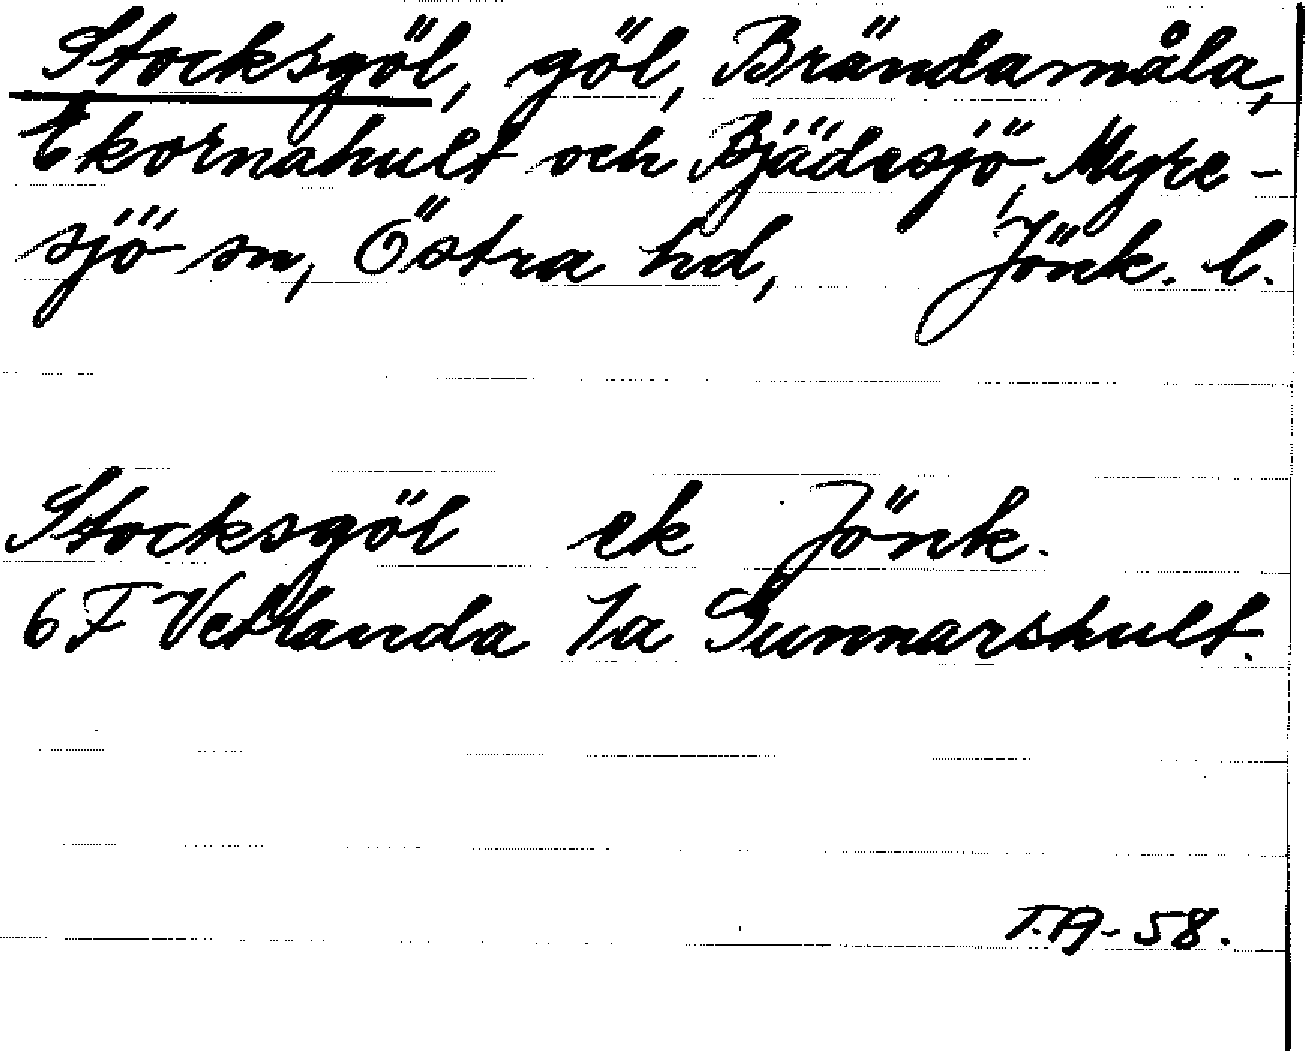 Stocksgöl, göl, Brändamåla,
Ekornahult och Bjädesjö, Myre-
sjö sn, Östra hd, Jönk. l.
Stocksgöl ek Jönk.
6 F Vetlanda 7a Gunnarshult.
T.A-58.